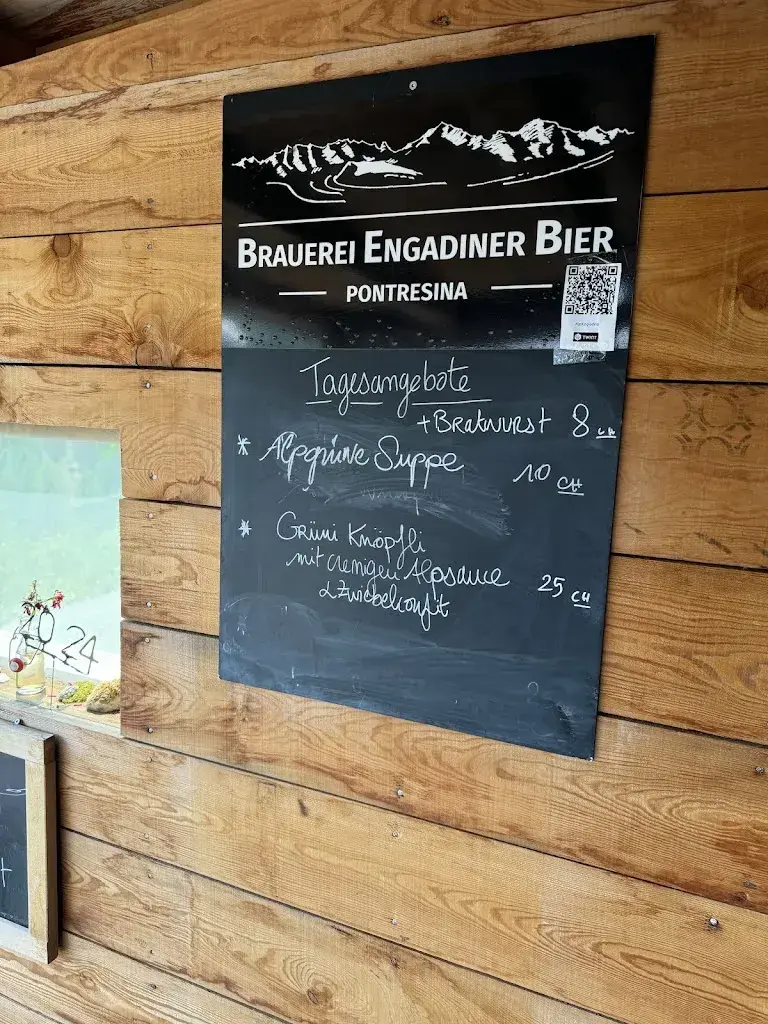 BRAUEREI ENGADINER BIER
PONTRESINA
TWINT
Tagesangebote
+Bratwurst 8
* Alpgrüne Suppe 10 CH
* Grüni Knöpfli
mit cremigen Alpsauce
& Zwiebelconfit 25 CH
24